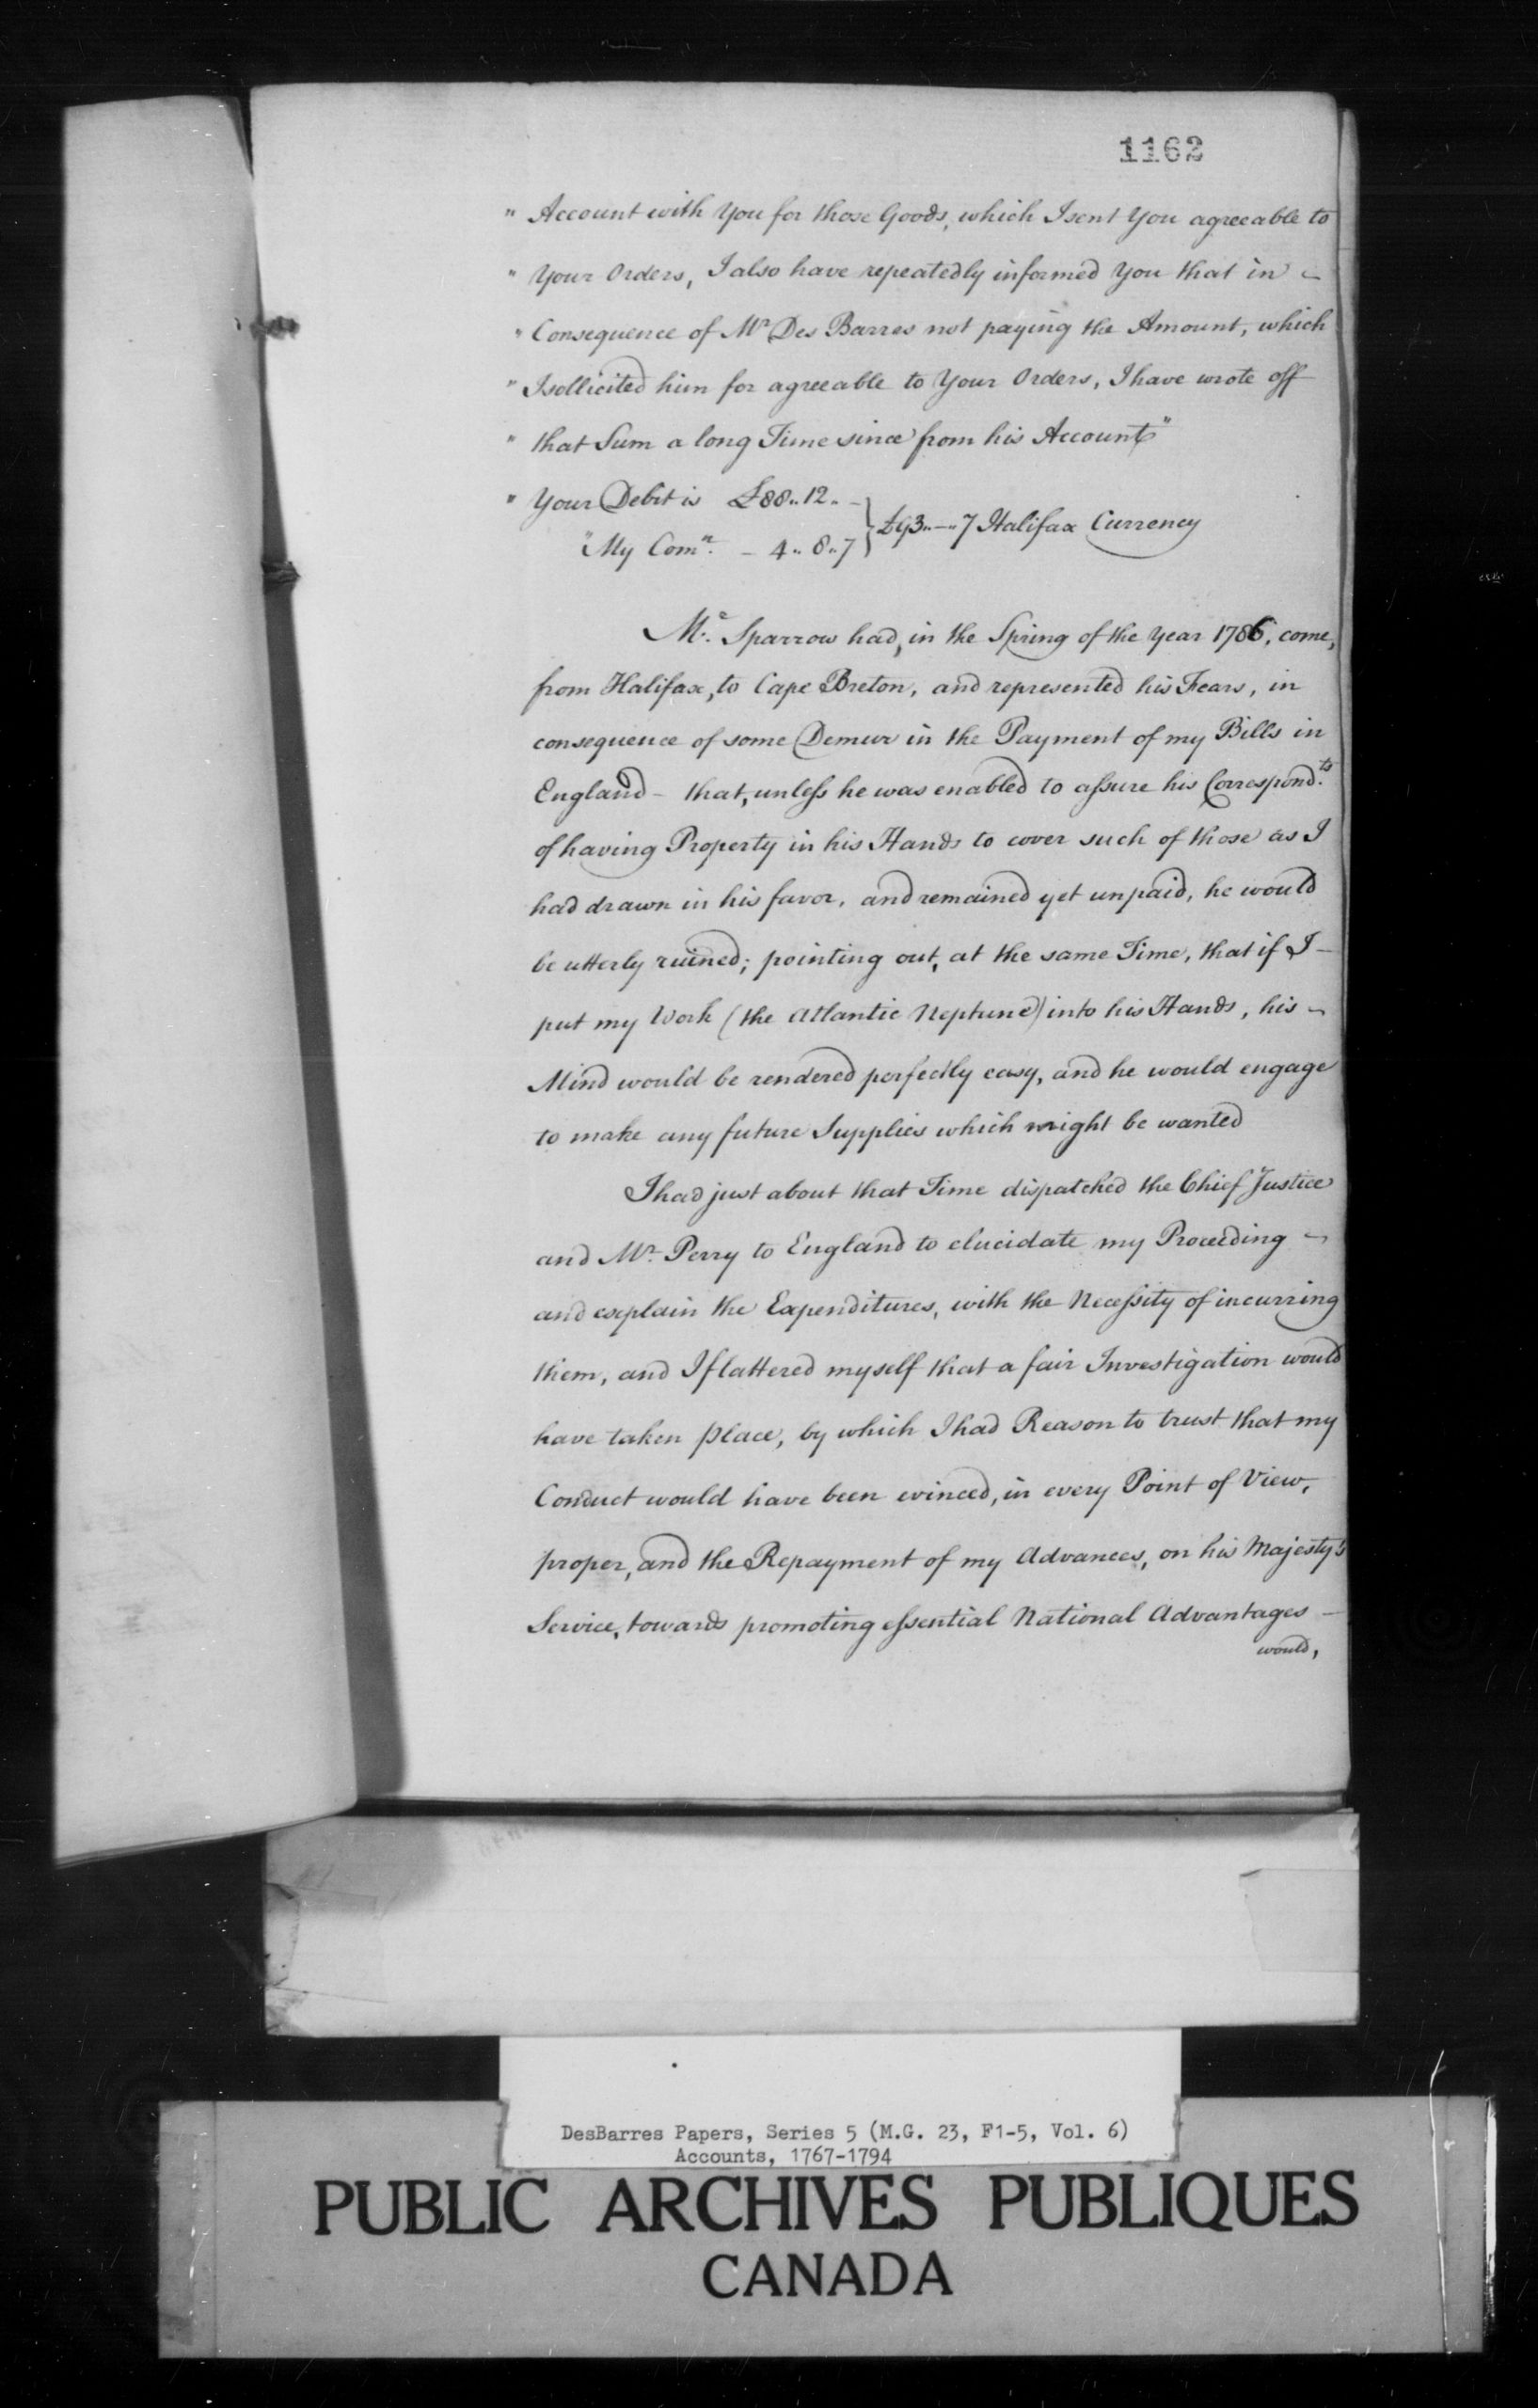 1162
" Account with You for those Goods, which I sent You agreeable to
" Your Orders, I also have repeatedly informed You that in
" Consequence of Mr. Des Barres not paying the Amount, which
" I sollicited him for agreeable to Your Orders, I have wrote off
" that Sum a long Time since from his Account"
" Your Debit is £88..12..-
"My Comn. - 4..8..7 } £93..-..7 Halifax Currency
Mr. Sparrow had, in the Spring of the Year 1786, come,
from Halifax, to Cape Breton, and represented his Fears, in
consequence of some Demur in the Payment of my Bills in
England - that, unless he was enabled to assure his Correspond.ts
of having Property in his Hands to cover such of those as I
had drawn in his favor, and remained yet unpaid, he would
be utterly ruined; pointing out, at the same Time, that if I -
put my Work (the Atlantic Neptune) into his Hands, his
Mind would be rendered perfectly easy, and he would engage
to make any future Supplies which might be wanted
I had just about that Time dispatched the Chief Justice
and Mr. Perry to England to elucidate my Proceeding
and explain the Expenditures, with the Necessity of incurring
them, and I flattered myself that a fair Investigation would
have taken place, by which I had Reason to trust that my
Conduct would have been evinced, in every Point of View,
proper, and the Repayment of my Advances, on his Majesty's
Service, towards promoting essential National Advantages -
would,
DesBarres Papers, Series 5 (M.G. 23, F1-5, Vol. 6)
Accounts, 1767-1794
PUBLIC ARCHIVES PUBLIQUES
CANADA